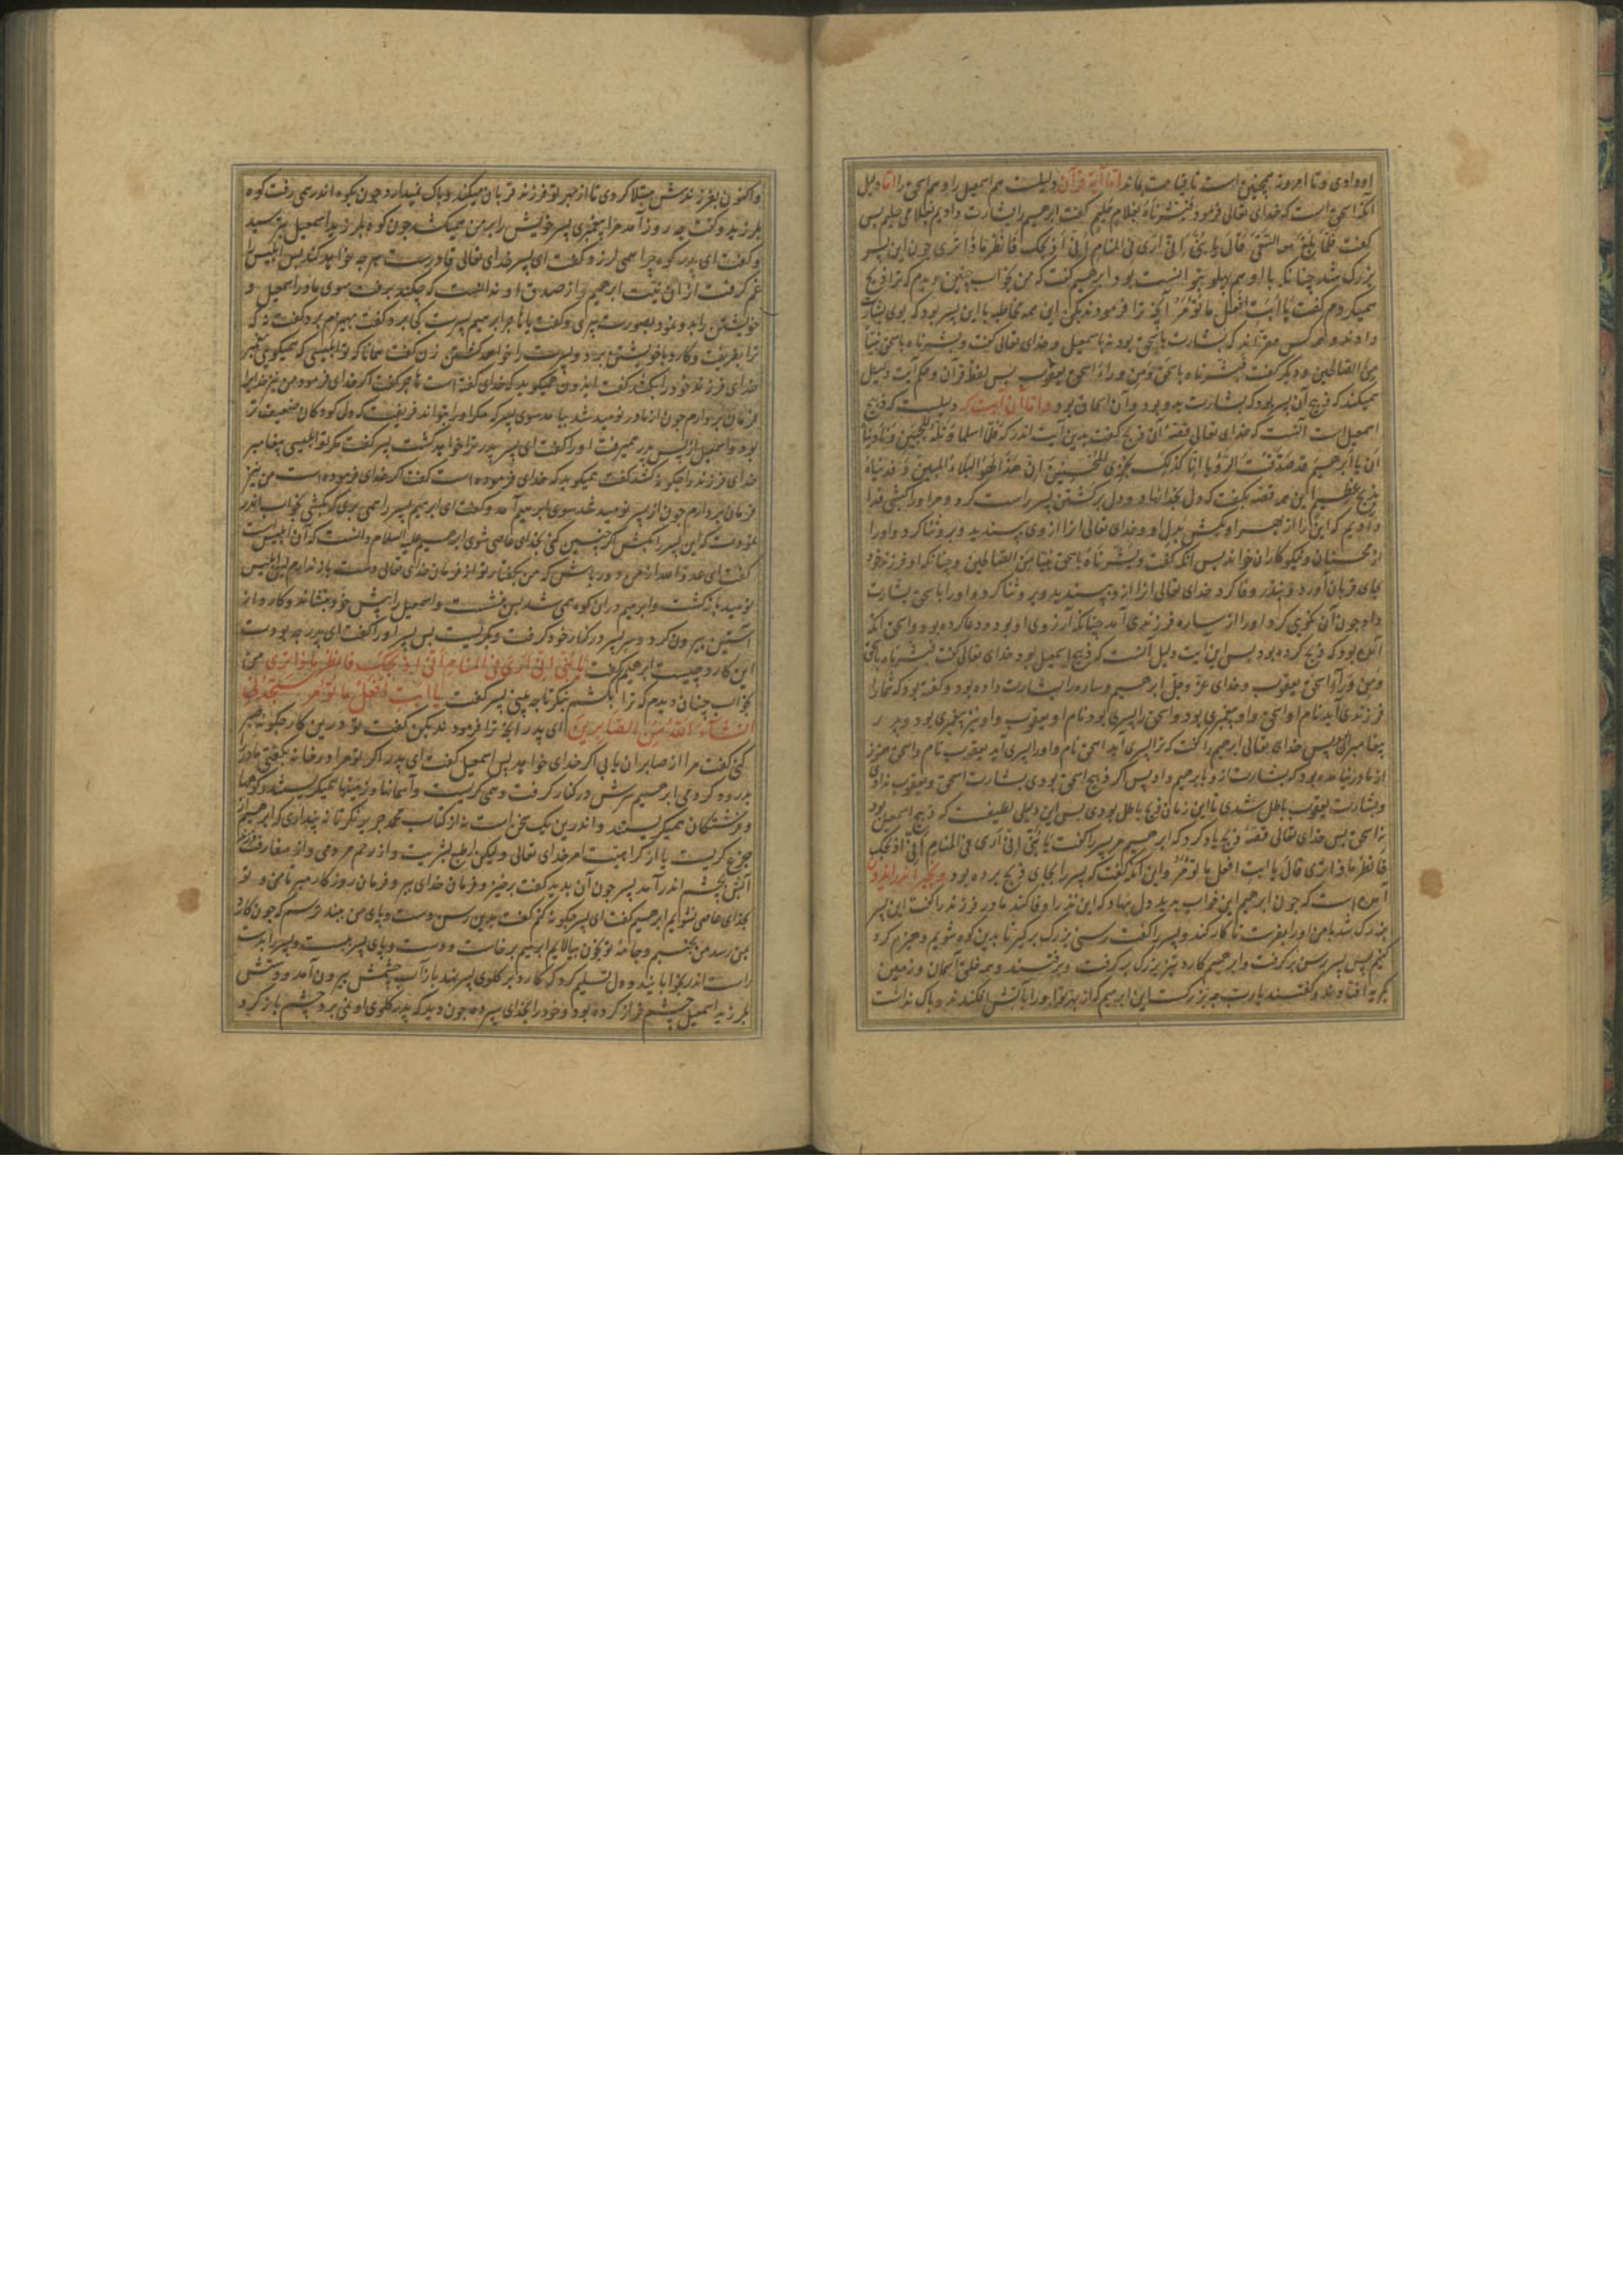 او دادی و تا امروز همچنین است تا قیامت بماند اما آیة قرآن دلیلست هم اسمعیل را و هم اسحق را اما دلیل
آنکه اسحق است که خدای تعالی فرمود فبشرناه بغلام حلیم کفت ابرهیم را بشارت دادیم بغلامی حلیم پس
کفت فلما بلغ معه السعی قال یا بنی انی اری فی المنام انی اذبحک فانظر ماذا تری چون این پسر
بزرک شد چنانکه با او هم پهلو بتوانست بود ابرهیم کفت که من بخواب چنین دیدم که ترا ذبح
همیکردم کفت یا ابت افعل ما تؤمر آنچه ترا فرمودند بکن این همه مخاطبه با این پسر بود که بوی بشارت
دادند و همه کس مقرّاند که بشارت باسحق بود نه باسمعیل و خدای تعالی کفت و بشرناه باسحق نبیا
من الصالحین و دیکر کفت فبشرناه باسحق و من وراء اسحق یعقوب پس لفظ قرآن و حکم آیت دلیل
همیکند که ذبیح آن پسر بود که بشارت بدو بود و آن اسحاق بود و اما آن آیت که دلیلست که ذبیح
اسمعیل است آنست که خدای تعالی قصهٔ آن ذبح کفت بدین آیت اندر که فلما اسلما و تله للجبین و نادیناه
ان یا ابرهیم قد صدقت الرؤیا انا کذلک نجزی المحسنین ان هذا لهو البلاء المبین و فدیناه
بذبح عظیم این همه قصه بکفت که دل بخدا نهاد و دل بر کشتن پسر راست کرد و مر او را کبشی فدا
دادیم که این را از بهر او بکش بدل او و خدای تعالی آنرا از وی بپسندید و برو ثنا کرد و او را
از محسنان و نیکوکاران خواند پس آنکه کفت و بشرناه باسحق نبیا من الصالحین و چنانکه او فرزند خود
بجای قربان آورد و بنذر وفا کرد خدای تعالی آنرا ازو بپسندید و برو ثنا کرد و او را باسحق بشارت
داد چون آن نکویی کرد او را از ساره فرزندی آمد چنانکه آرزوی او بود و دعا کرده بود و اسحق آنکه
آمده بود که ذبح کرده بود پس این آیت دلیل آنست که ذبیح اسمعیل بود خدای تعالی کفت فبشرناه باسحق
و من وراء اسحق یعقوب و خدای عزّ و جلّ ابرهیم و ساره را بشارت داده بود و کفته بود که شما را
فرزندی آید نام او اسحق و او پیغمبری بود و اسحق را پسری بود نام او یعقوب و او نیز پیغمبری بود و پدر
پیغامبران پس خدای تعالی ابرهیم را کفت که ترا پسری آید اسحق نام و او را پسری آید یعقوب نام و اسحق هنوز
از مادر نیامده بود که بشارت ازو بابرهیم داد پس اگر ذبیح اسحق بودی بشارت اسحق و یعقوب ندادی
و بشارت یعقوب باطل شدی تا این زمان ذبح باطل بودی پس این دلیلی لطیفست که ذبیح اسمعیل بود
نه اسحق پس خدای تعالی قصهٔ ذبح یاد کرد که ابرهیم مر پسر را کفت یا بنی انی اری فی المنام انی اذبحک
فانظر ماذا تری قال یا ابت افعل ما تؤمر و این آنکه کفت که پسر را بجای ذبح برده بود و بخبر اندر ایدون
آمده است که چون ابرهیم این خواب بدید دل بنهاد که این نذر را وفا کند مادر فرزند را کفت این پسر
بزرک شد با من او را بفرست تا کار کند و پسر را کفت رسنی بزرک برکیر تا بدین کوه شویم و هیزم کرد
کنیم پس پسر رسن برکرفت و ابرهیم کارد تیز بزرک برکرفت و برفتند و همه خلق آسمان و زمین
بکریه افتادند و کفتند یا رب چه بزرکست این ابرهیم که از بهر تو او را بآتش افکندند و باک نداشت
و اکنون بفرزندش مبتلا کردی تا از بهر تو فرزند قربان میکند و باک نمیدارد چون بکوه اندر همی رفت کوه
بلرزید و کفت چه روز آمد مرا پیغمبری پسر خویش را بر من همیکشد چون کوه بلرزید اسمعیل بترسید
و کفت ای پدر کوه چرا همی لرزد کفت ای پسر خدای تعالی قادرست هر چه خواهد کند پس ابلیس را
غم کرفت از آن نیت ابرهیم و از صدق او ندانست که چکند برفت سوی مادر اسمعیل و
خویشتن را بدو نمود بصورت پیری و کفت یا هاجر ابرهیم پسرت کجا برد کفت بهیزم برد کفت نه که
ترا بفریفت و کارد با خویشتن برد و پسرت را خواهد کشتن زن کفت همانا که تو ابلیسی که همیکویی پیغمبر
خدای فرزند خود را بکشد کفت ایذون همیکوید که خدای کفته است هاجر کفت اکر خدای فرمود من نیز خدایرا
فرمان بردارم چون از مادر نومید شد بیامد سوی پسر که مکر او را بتواند فریفت که دل کودکان ضعیفتر
بود و اسمعیل از پس پدر همیرفت او را کفت ای پسر پدر ترا خواهد کشت پسر کفت مکر تو ابلیسی پیغامبر
خدای فرزند را چکونه کشد کفت همیکوید که خدای فرموده است کفت اکر خدای فرموده است من نیز
فرمان بردارم چون از پسر نومید شد سوی ابرهیم آمد و کفت ای ابرهیم پسر را همی بری که بکشی بخواب اندر
نمودت که این پسر را بکش اکر چنین کنی بخدای عاصی شوی ابرهیم علیه السلام دانست که آن ابلیس است
کفت ای عدوّ الله از من دور باش که من بکفتار تو از فرمان خدای تعالی دست باز ندارم پس ابلیس
نومید بازکشت و ابرهیم در آن کوه همی شد پس بنشست و اسمعیل را پیش خود بنشاند و کارد از
آستین بیرون کرد و سر پسر در کنار خود کرفت و بکریست پس پسر او را کفت ای پدر چه بودت
این کارد چیست ابرهیم کفت یا بنی انی اری فی المنام انی اذبحک فانظر ماذا تری من
بخواب چنان دیدم که ترا بکشتم بنکر تا چه بینی پسر کفت یا ابت افعل ما تؤمر ستجدنی
انشاء الله من الصابرین ای پدر آنچه ترا فرمود بکن کفت تو درین کار چکونه صبر
کنی کفت مرا از صابران یابی اکر خدای خواهد پس اسمعیل کفت ای پدر اکر تو مرا در خانه بکفتی مادر را
بدرود کردمی ابرهیم سرش در کنار کرفت و همی کریست و آسمانها و زمینها همیکریستند و کوهها
و فرشتکان همیکریستند و اندرین یک سخن است نه از کتاب محمد جریر نکر تا نه پنداری که ابرهیم از
جزع کریست یا از کراهیت امر خدای تعالی ولیکن از طبع بشریت و از رحم مردمی و از مفارقت فرزند
آبش بچشم اندر آمد پسر چون آن بدید کفت برخیز و فرمان خدای ببر و فرمان روزکار مبر تا من و تو
بخدای عاصی نشویم ابرهیم کفت ای پسر چکونه کنم کفت بدین رسن دست و پای من ببند ترسم که چون کارد
بمن رسد من بجنبم و جامهٔ تو بخون بیالایم ابرهیم برخاست و دست و پای پسر ببست و پسر را بدست
راست اندر بخوابانید و دل تسلیم کرد که کارد بر کلوی پسر نهد باز آب چشمش بیرون آمد و دستش
بلرزید اسمعیل چشم فراز کرده بود و خود را بخدای سپرده چون دید که پدر کلوی او نمی برد چشم باز کرد